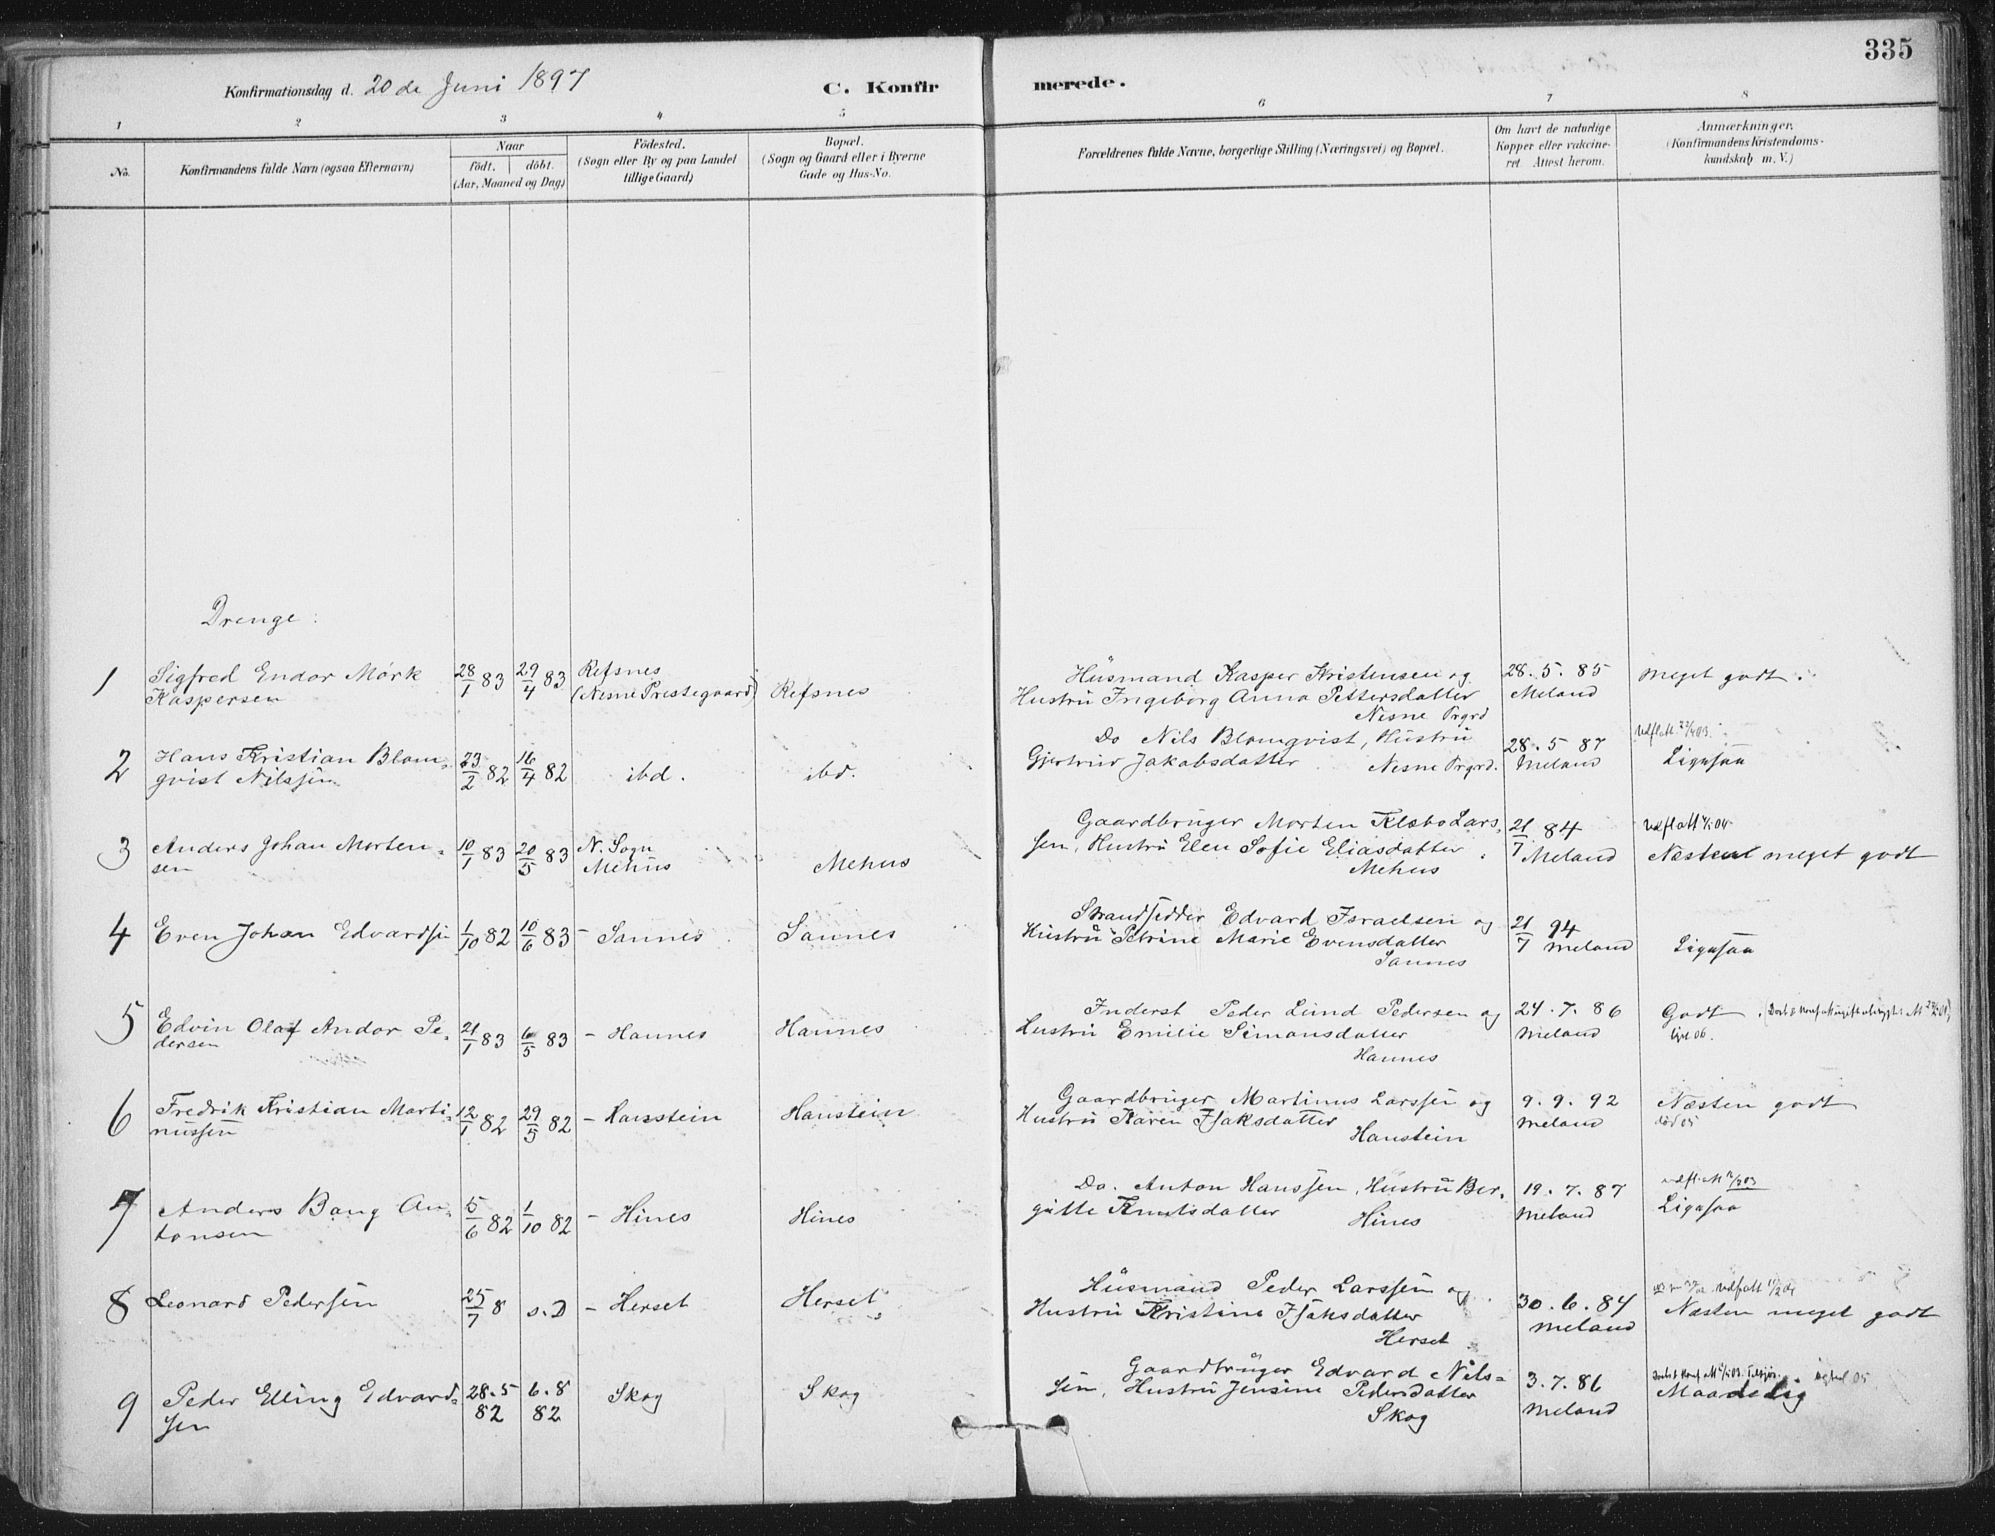 335
Konfirmationsdag d. 20de Juni 1897
C. Konfirmerede.
1 2 3 4 5 6 7 8
No.
Konfirmandens fulde Navn (ogsaa Efternavn)
Naar
födt. döbt.
(Aar, Maaned og Dag)
Födested.
(Sogn eller By og paa Landet
tillige Gaard)
Bopæl.
(Sogn og Gaard eller i Byerne
Gade og Hus-No.
Forældrenes fulde Navne, borgerlige Stilling (Næringsvei) og Bopæl.
Om havt de naturlige
Kopper eller vakcine-
ret. Attest herom.
Anmærkninger.
(Konfirmandens Kristendoms-
kundskab m. V.)
Drenge:
1 Sigfred Endor Mörk
Kaspersen
28/1 83 29/4 83
Refsnes
(Nesne Prestegaard)
Refsnes
Husmand Kasper Kristensen og
Hustru Ingeborg Anna Pettersdatter
Nesne Prgrd
28.5.85
Meland
Meget godt.
2 Hans Kristian Blom-
qvist Nilssen
23/2 82 16/4 82
ibd.
ibd.
Do Nils Blomqvist, Hustru
Gjertrud Jakobsdatter Nesne Prgrd.
28.5 87
Meland
Ligesaa
3 Anders Johan Morten-
sen
10/1 83 20/5 83
N. Sogn
Mehus
Mehus
Gaardbruger Morten Klæbo Lars-
sen, Hustru Elen Sofie Eliasdatter
Mehus
21/7 84
Meland
Næsten meget godt
4 Even Johan Edvardsen
1/10 82 10/6 83
- Sannes
Sannes
Strandsidder Edvard Israelsen og
Hustru Petrine Marie Evensdatter
Sannes
21/7 94
Meland
Ligesaa
5 Edvin Olaf Andor Pe-
dersen
21/1 83 6/5 83
- Hannes
Hannes
Inderst Peder Lund Pedersen og
Hustru Emilie Simonsdatter
Hannes
24.7.86
Meland
Godt
6 Fredrik Kristian Marti-
nussen
12/1 82 29/5 82
- Hanstein
Hanstein
Gaardbruger Martinus Larssen og
Hustru Karen Isaksdatter
Hanstein
9.9.92
Meland
Næsten godt
död 05
7 Anders Bang An-
tonsen
5/6 82 1/10 82
- Hines
Hines
Do. Anton Hanssen, Hustru Ber-
gitte Knutsdatter Hines
19.7.87
Meland
Ligesaa
8 Leonard Pedersen
25/7 8 s.D
- Herset
Herset
Husmand Peder Larssen og
Hustru Kristine Isaksdatter
Herset
30.6.84
Meland
Næsten meget godt
9 Peder Elling Edvard-
sen
28.5
82
6.8
82
Skog
Skog
Gaardbruger Edvard Nils-
sen, Hustru Jensine Pedersdatter
Skog
3.7.86
Meland
Maadelig